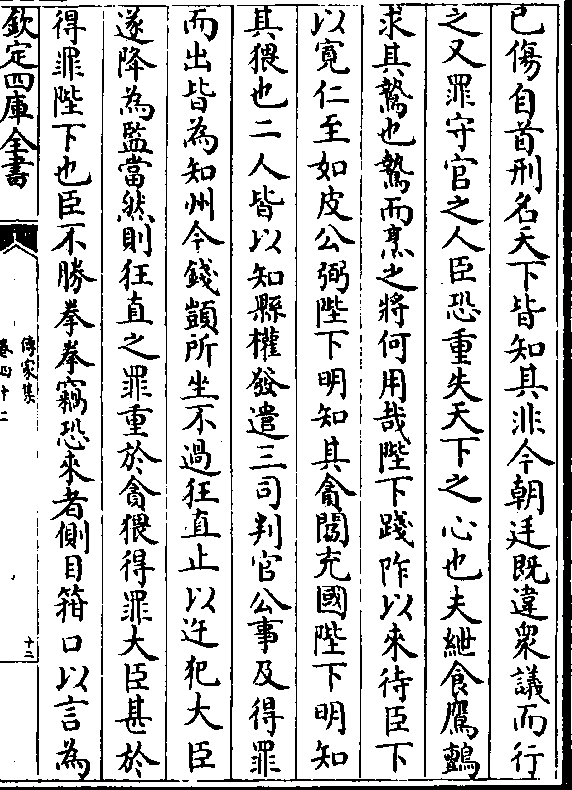 已傷自首刑名天下皆知其非今朝廷既違衆議而行
之又罪守官之人臣恐重失天下之心也夫紲食鷹鸇
求其鷙也鷙而烹之將何用哉陛下踐阼以來待臣下
以寛仁至如皮公弼陛下明知其貪閻充國陛下明知
其猥也二人皆以知縣權發遣三司判官公事及得罪
而出皆為知州今錢顗所坐不過狂直止以迕犯大臣
遂降為監當然則狂直之罪重於貪猥得罪大臣甚於
得罪陛下也臣不勝拳拳竊恐來者側目箝口以言為
欽定四庫全書
傳家集
卷四十二
十二